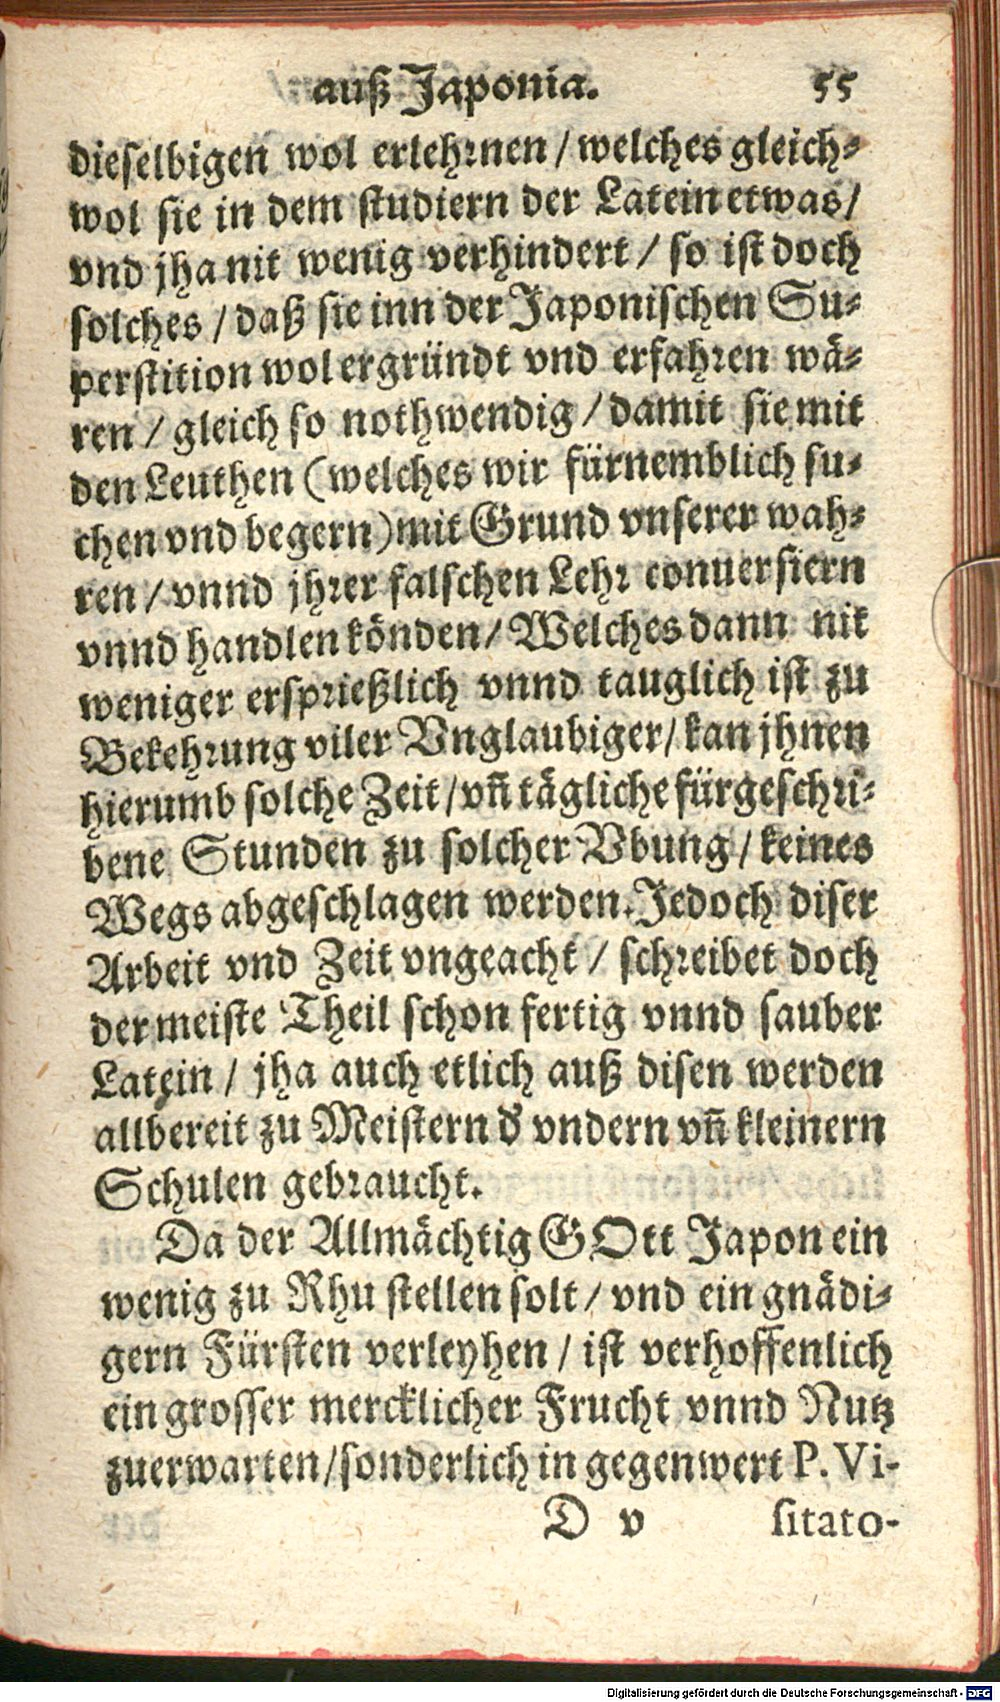 auß Japonia. 55
dieselbigen wol erlehrnen / welches gleich-
wol sie in dem studiern der Latein etwas /
vnd jha nit wenig verhindert / so ist doch
solches / daß sie inn der Japonischen Su-
perstition wol ergründt vnd erfahren wä-
ren / gleich so nothwendig / damit sie mit
den Leuthen (welches wir fürnemblich su-
chen vnd begern) mit Grund vnserer wah-
ren / vnnd jhrer falschen Lehr conuersiern
vnnd handlen könden / Welches dann nit
weniger ersprießlich vnnd tauglich ist zu
Bekehrung viler Vnglaubiger / kan jhnen
hierumb solche Zeit / vñ tägliche fürgeschri-
bene Stunden zu solcher Vbung / keines
Wegs abgeschlagen werden. Jedoch diser
Arbeit vnd Zeit vngeacht / schreibet doch
der meiste Theil schon fertig vnnd sauber
Latein / jha auch etlich auß disen werden
allbereit zu Meistern d' vndern vñ kleinern
Schulen gebraucht.
Da der Allmächtig GOtt Japon ein
wenig zu Rhu stellen solt / vnd ein gnädi-
gern Fürsten verleyhen / ist verhoffenlich
ein grosser mercklicher Frucht vnnd Nutz
zuerwarten / sonderlich in gegenwert P. Vi-
D v sitato-
Digitalisierung gefördert durch die Deutsche Forschungsgemeinschaft - DFG